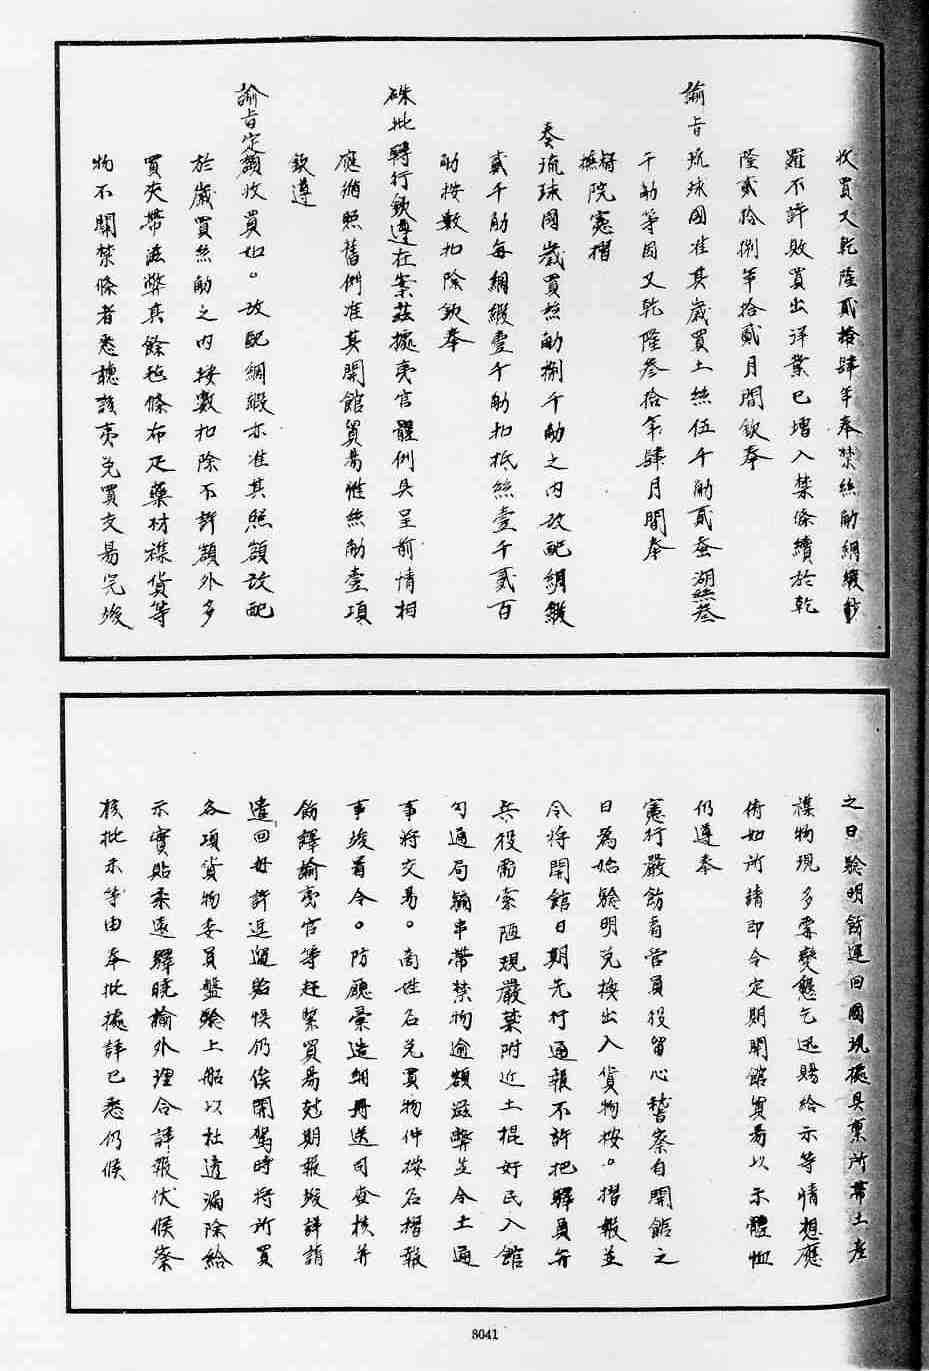 收買又乾隆貳拾肆年奉禁絲觔綢緞紗
羅不許販買出洋業已增入禁條續於乾
隆貳拾捌年拾貳月間欽奉
諭旨琉球國准其歲買土絲伍千觔貳蚕湖絲叁
千觔等因又乾隆叁拾年肆月間奉
督撫院憲摺
奏琉球國歲買絲觔捌千觔之內改配綢緞
貳千觔每綢緞壹千觔扣抵絲壹千貳百
觔按數扣除欽奉
硃批轉行欽遵在案茲據夷官體例具呈前情相
應循照舊例准其開館貿易惟絲觔壹項
欽遵
諭旨定額收買如。改配綢緞亦准其照額改配
於歲買絲觔之內按數扣除不許額外多
買夾帶滋弊其餘毡條布疋藥材襍貨等
物不關禁條者悉聽該夷兌買交易完竣
之日驗明飭運回國現據具稟所帶土産
襍物現多霉變懇乞迅賜給示等情想應
俯如所請即令定期開館貿易以示體恤
仍遵奉
憲行嚴飭看管員役留心稽察自開館之
日為始驗明兌換出入貨物按。摺報並
令將開館日期先行通報不許把驛員弁
兵役需索陋規嚴禁附近土棍奸民入館
勾通局騙串帶禁物逾額滋弊並令土通
事將交易。商姓名兌買物件按名摺報
事竣着令。防廳彙造細冊送司查核并
飭譯諭夷官等赶緊買易尅期報竣詳請
遣回毋許逗遛貽悞仍俟開駕時將所買
各項貨物委員盤驗上船以杜透漏除給
示實貼柔遠驛曉諭外理合詳報伏候察
核批示等由奉批據詳已悉仍候
8041